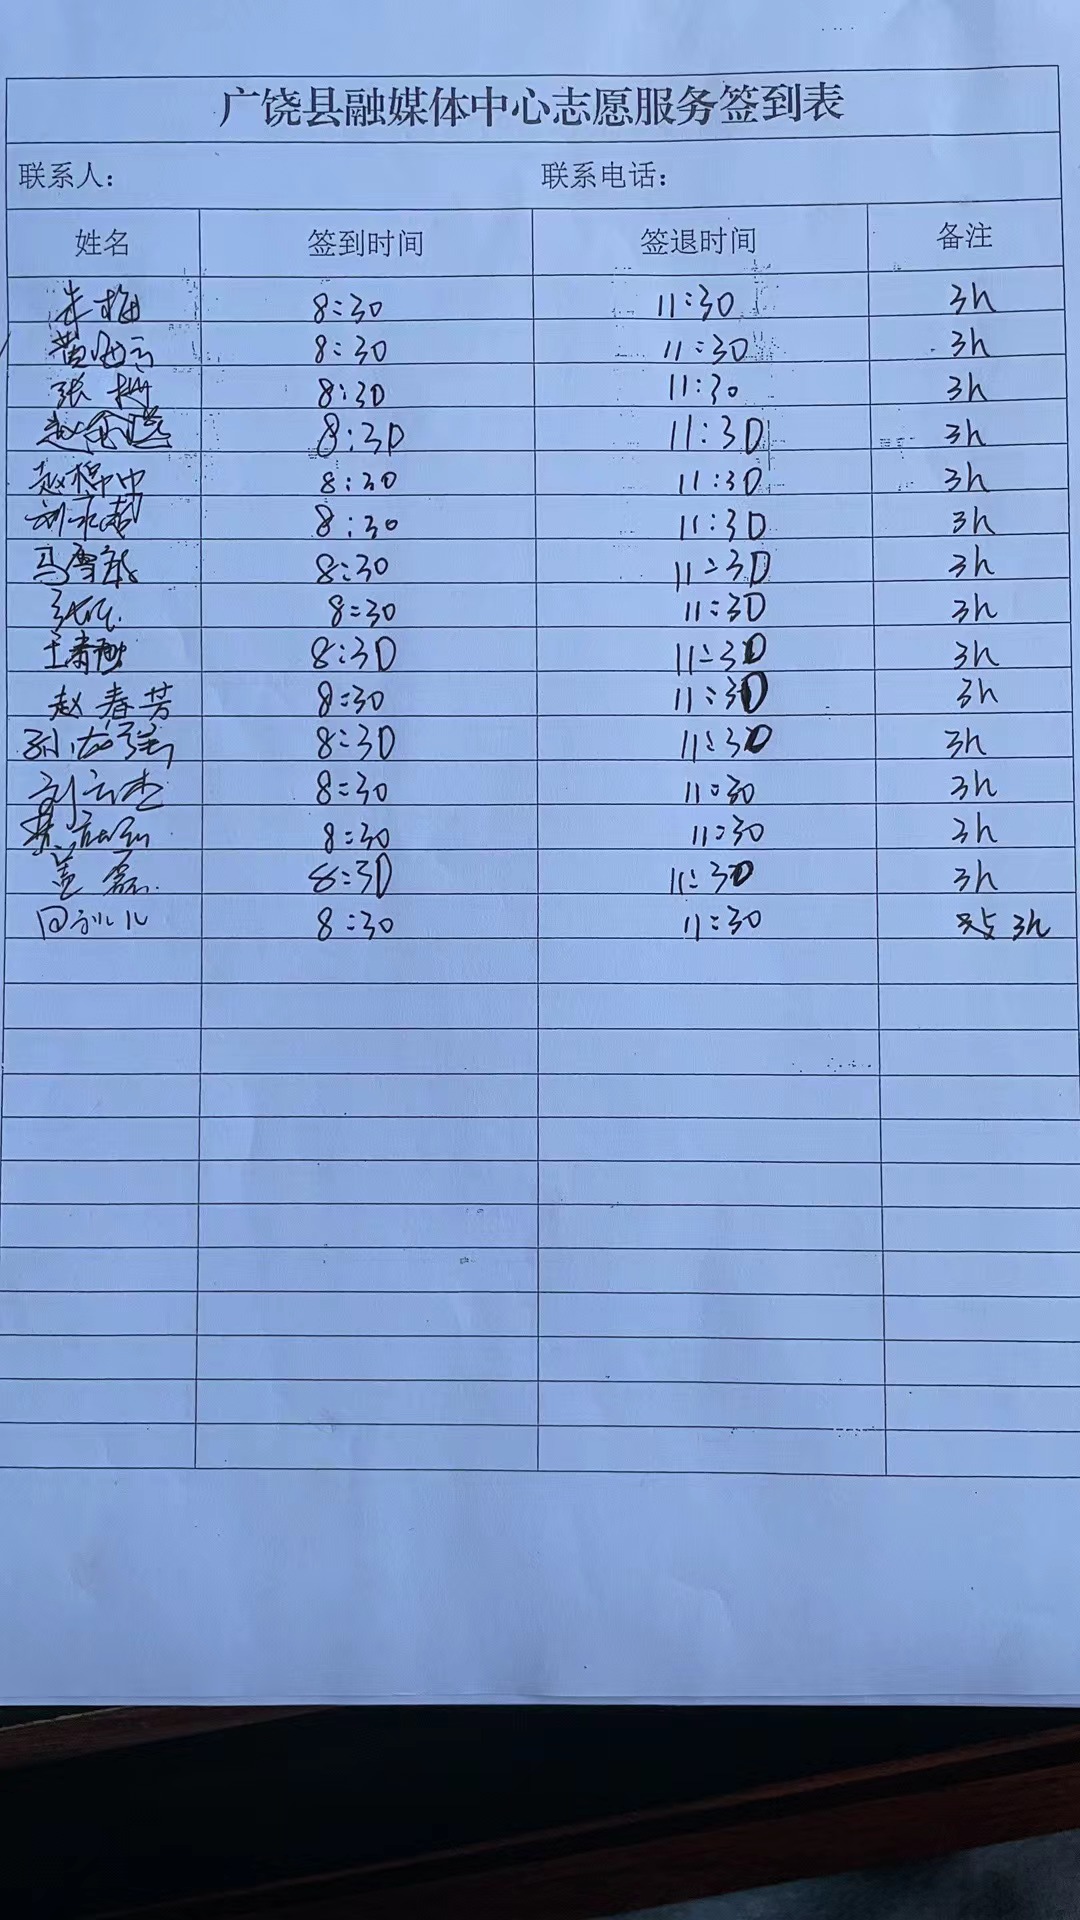 广饶县融媒体中心志愿服务签到表
联系人： 联系电话：
姓名 签到时间 签退时间 备注
朱梅 8:30 11:30 3h
黄 8:30 11:30 3h
张姗 8:30 11:30 3h
赵 8:30 11:30 3h
赵 8:30 11:30 3h
刘 8:30 11:30 3h
马雪 8:30 11:30 3h
张 8:30 11:30 3h
王 8:30 11:30 3h
赵春芳 8:30 11:30 3h
孙 8:30 11:30 3h
刘云杰 8:30 11:30 3h
8:30 11:30 3h
盖磊 8:30 11:30 3h
8:30 11:30 3h